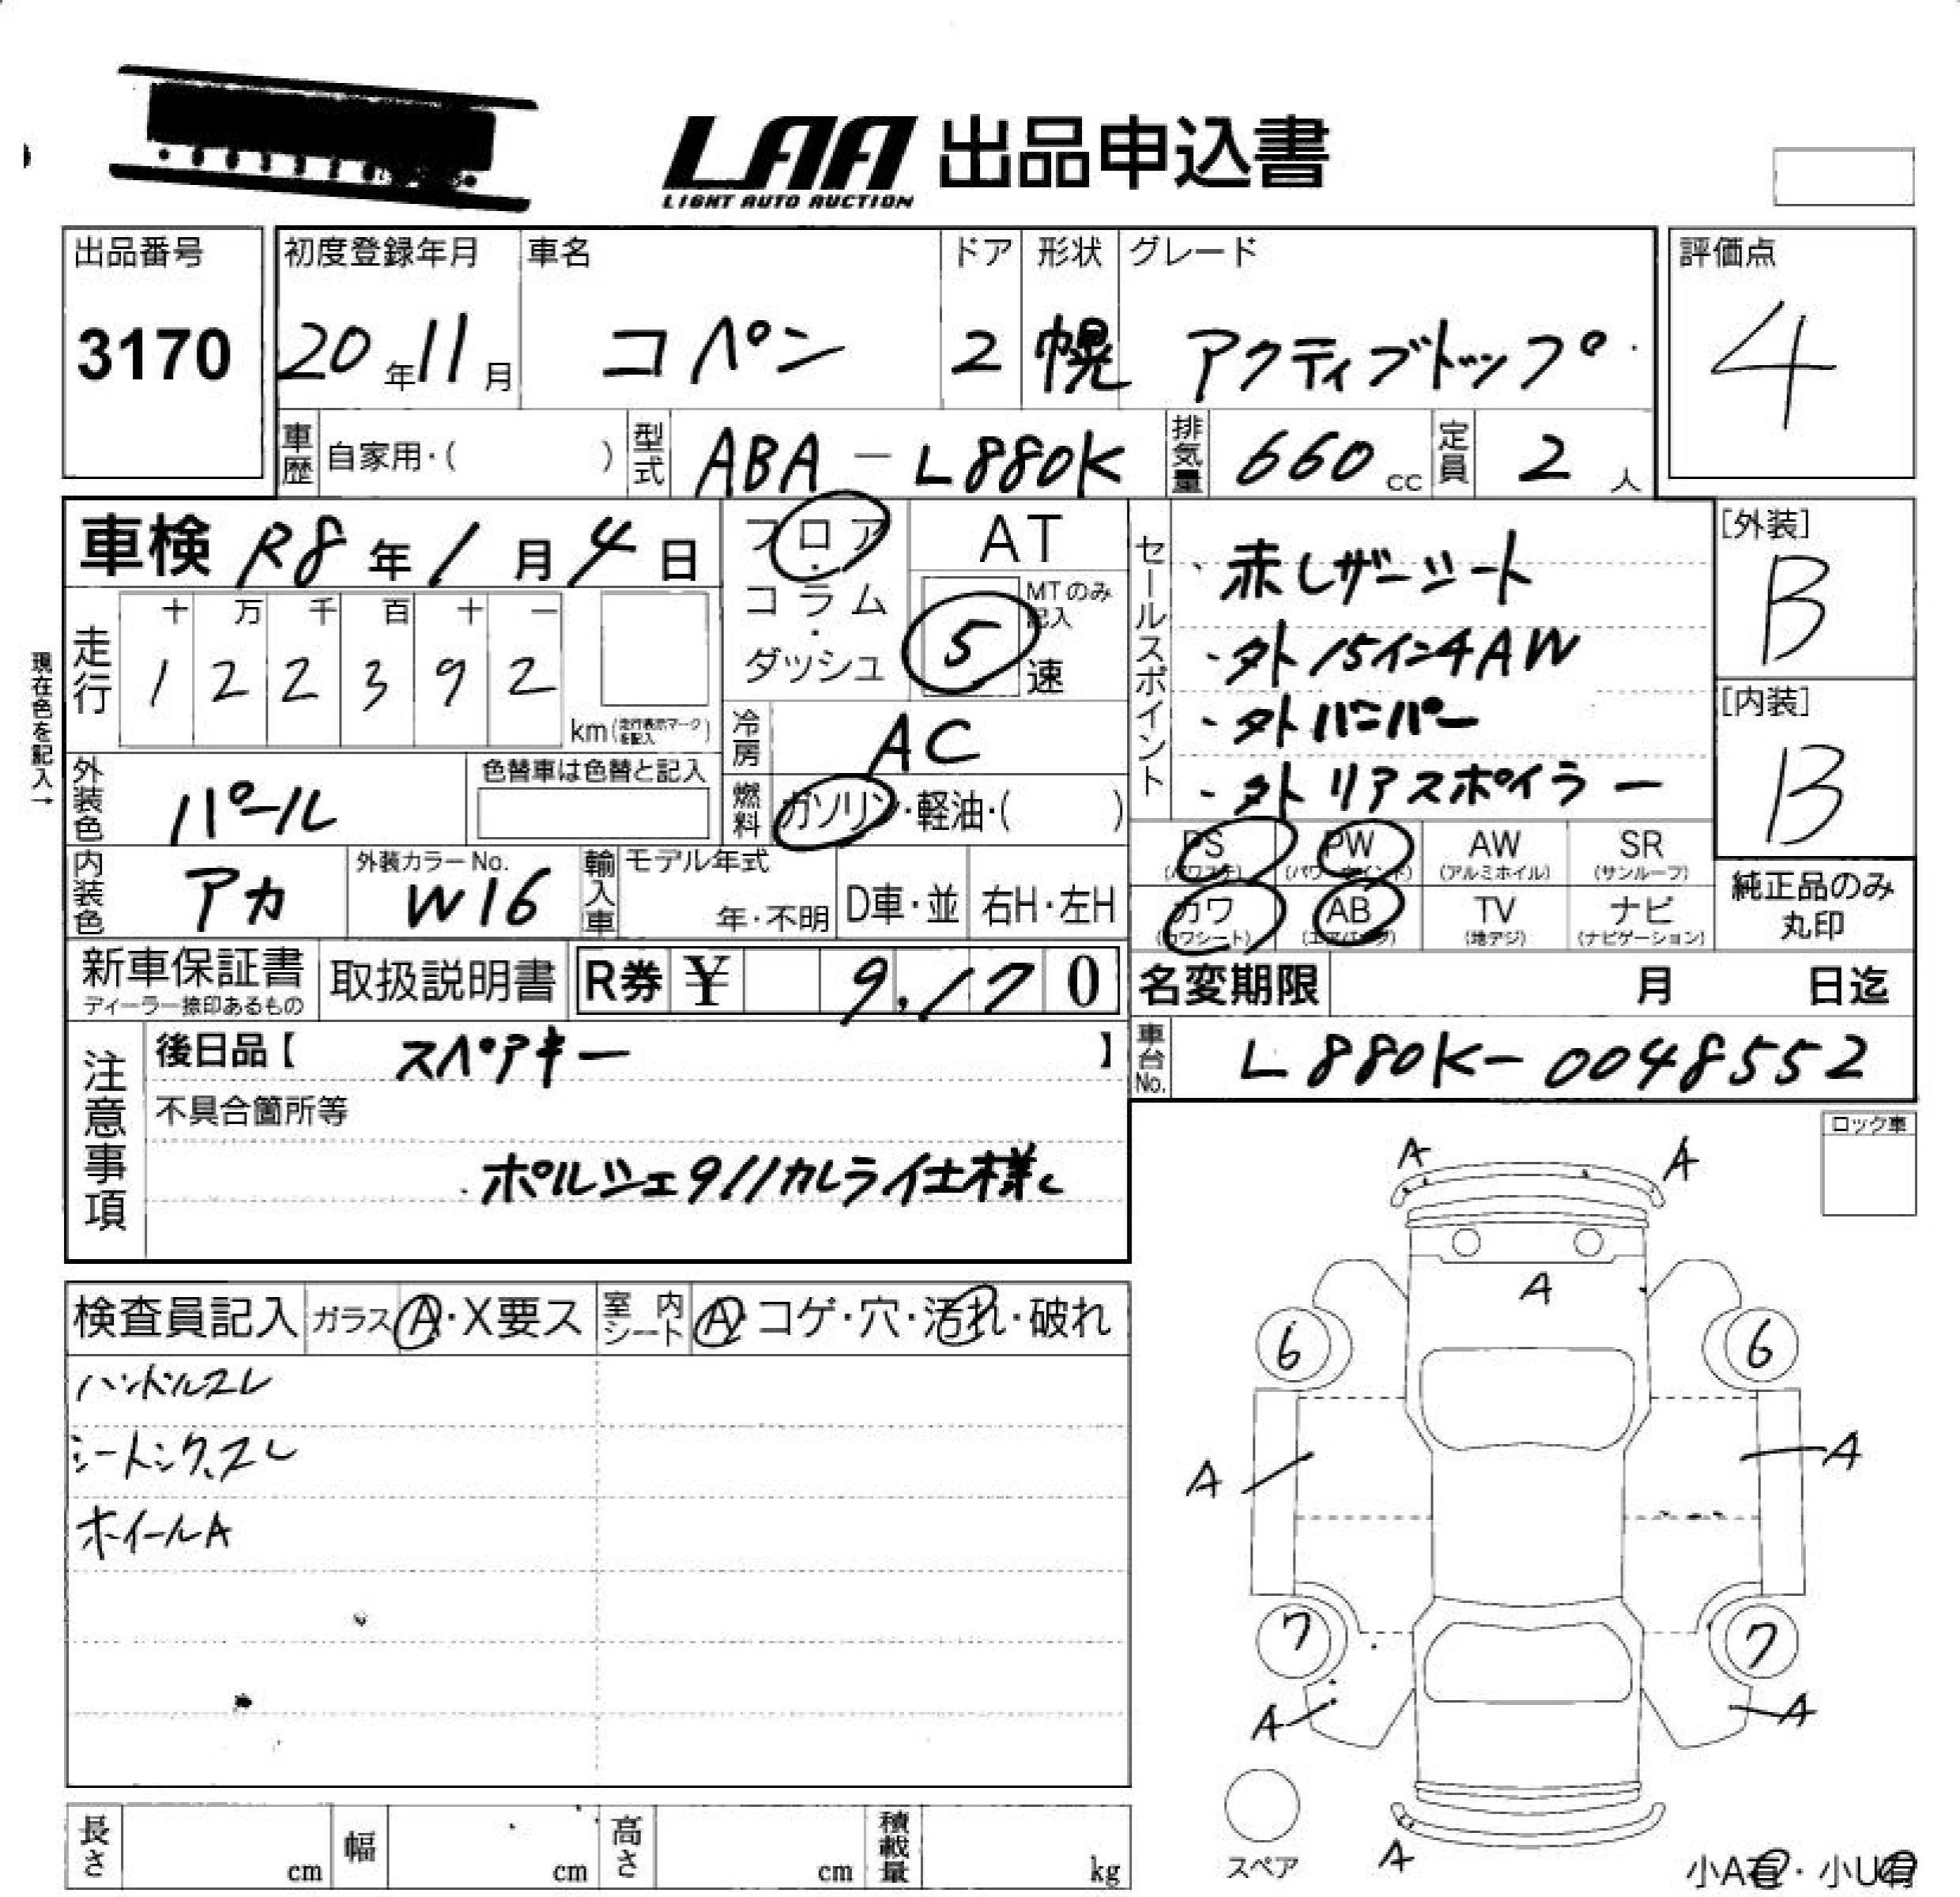 LAA 出品申込書
LIGHT AUTO AUCTION
出品番号
3170
初度登録年月
20年11月
車名
コペン
ドア
2
形状
幌
グレード
アクティブトップ
評価点
4
車歴 自家用・( )
型式 ABA-L880K
排気量 660cc
定員 2人
車検 R8年1月4日
フロア・コラム・ダッシュ
AT
MTのみ記入
5速
現在色を記入→
走行
十 万 千 百 十 一
1 2 2 3 9 2
km(走行表示マークを記入)
冷房 AC
燃料 ガソリン・軽油・( )
外装色 パール
色替車は色替と記入
内装色 アカ
外装カラーNo. W16
輸入車 モデル年式
年・不明
D車・並
右H・左H
セールスポイント
・赤レザーシート
・外15インチAW
・外バンパー
・外リアスポイラー
[外装]
B
[内装]
B
PS (パワステ) PW (パワーウインド) AW (アルミホイル) SR (サンルーフ)
カワ (カワシート) AB (エアバッグ) TV (地デジ) ナビ (ナビゲーション)
純正品のみ丸印
新車保証書
ディーラー捺印あるもの
取扱説明書
R券 ¥ 9,170
名変期限 月 日迄
車台No. L880K-0048552
注意事項
後日品【 スペアキー 】
不具合箇所等
ポルシェ911カレライ仕様
ロック車
検査員記入 ガラス A・X要ス 室内シート A・コゲ・穴・汚れ・破れ
ハンドルスレ
シートシワ、スレ
ホイールA
A A
A
6 6
A A
7 7
A A
A
スペア
長さ cm 幅 cm 高さ cm 積載量 kg
小A有・小U有